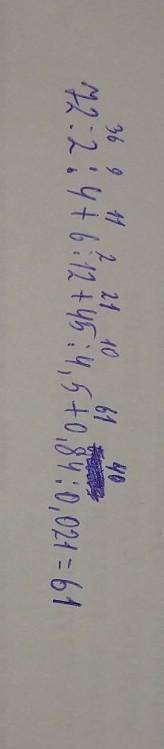 36 9 11 2 21 10 61 40
72:2:4+6:12+45:4,5+0,84:0,021=61